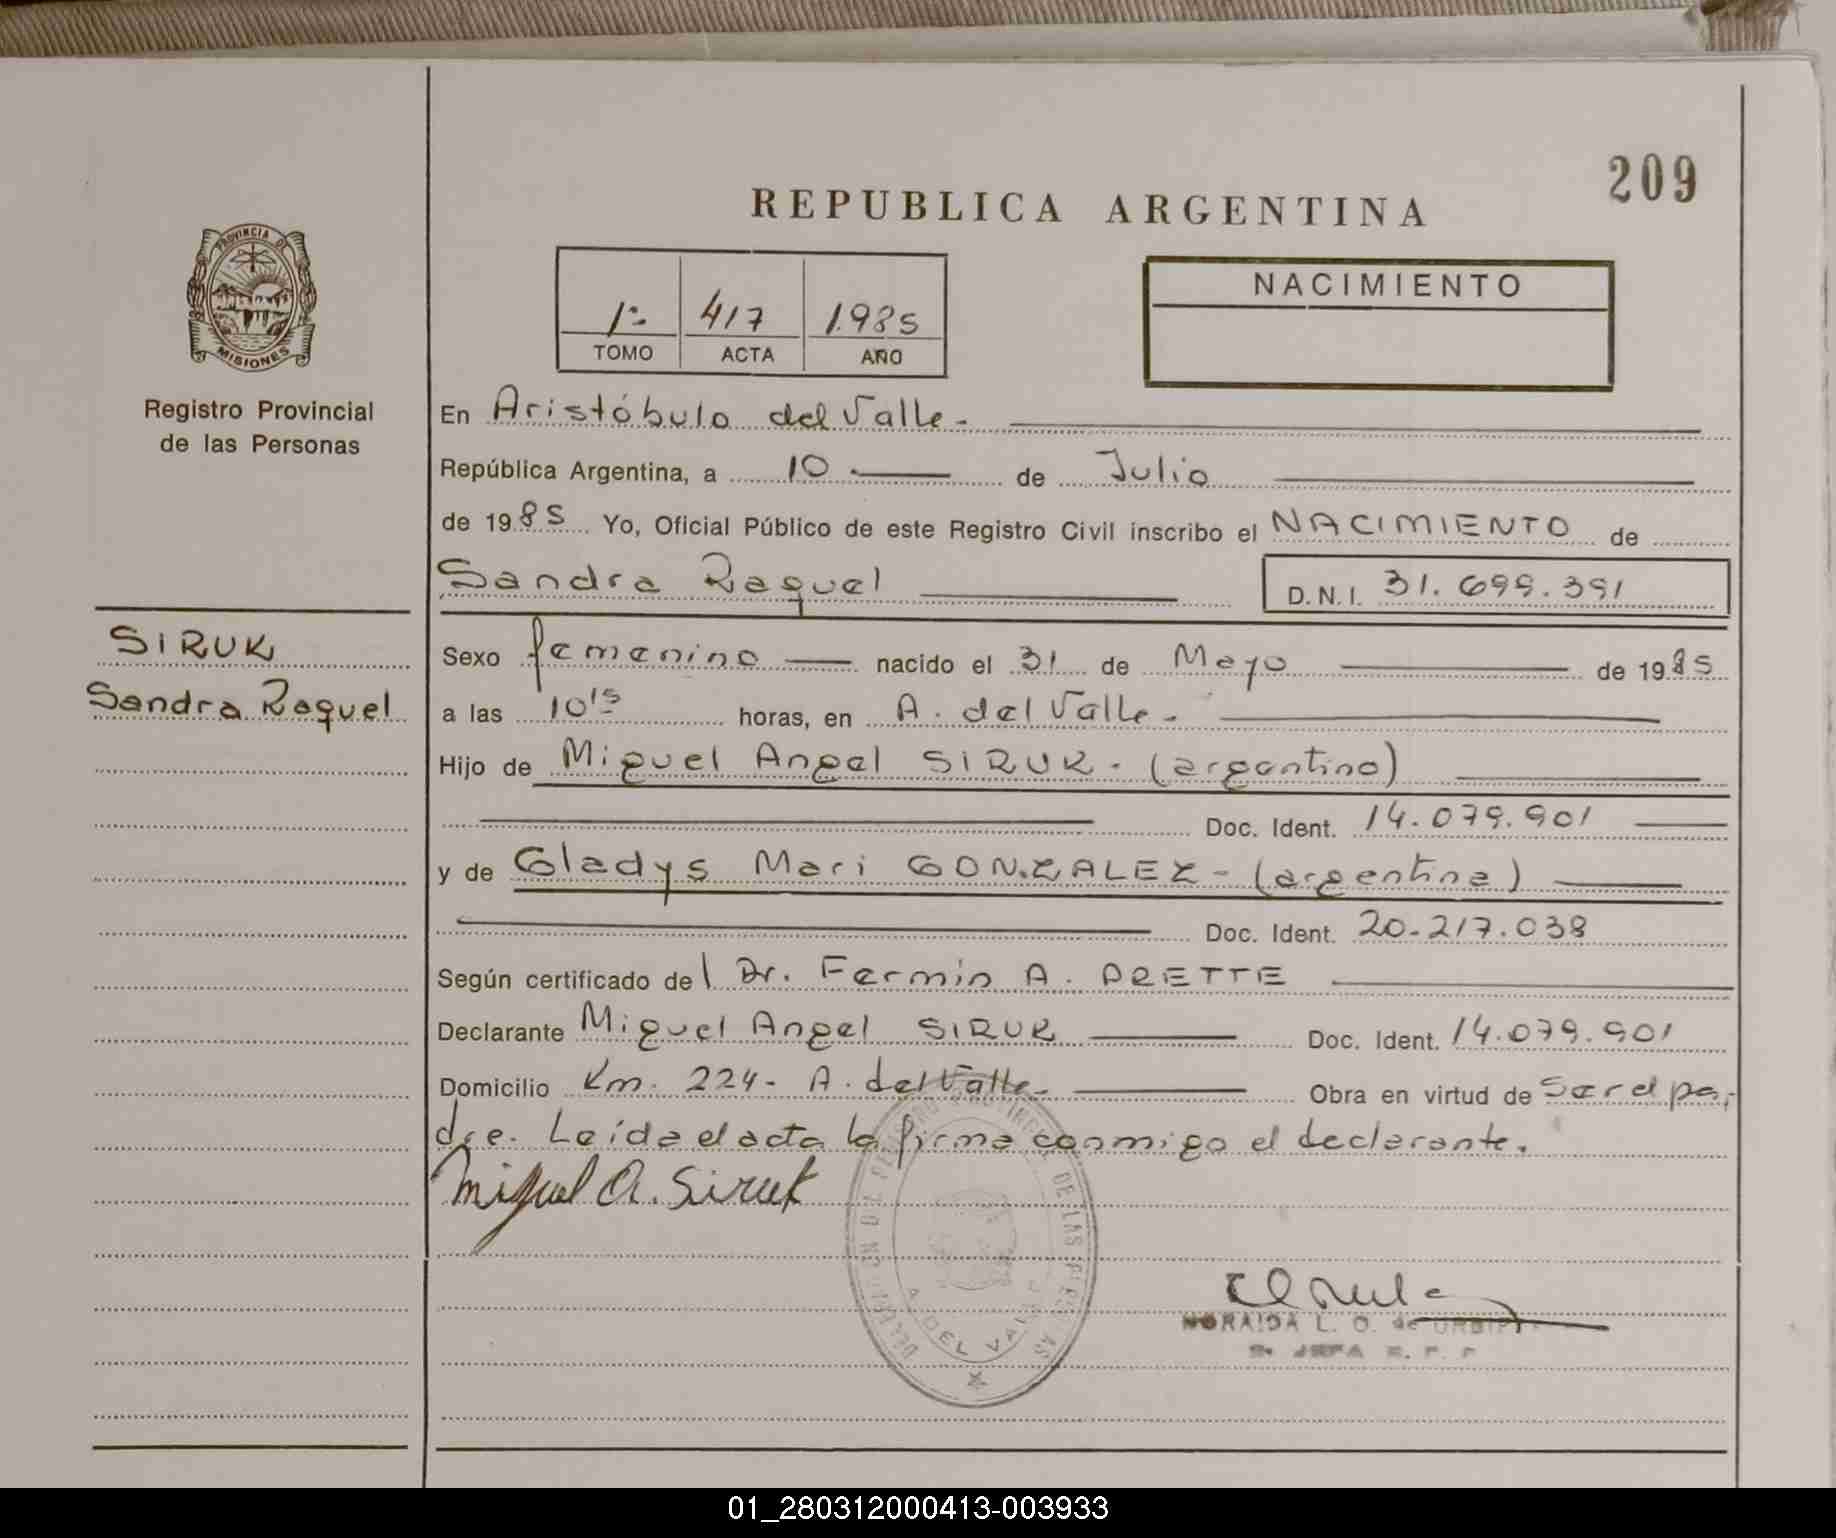 209
REPUBLICA ARGENTINA
PROVINCIA DE
MISIONES
Registro Provincial
de las Personas
SIRUK
Sandra Raquel
1º 417 1.985
TOMO ACTA AÑO
NACIMIENTO
En Aristóbulo del Valle.
República Argentina, a 10 de Julio
de 1985 Yo, Oficial Público de este Registro Civil inscribo el NACIMIENTO de
Sandra Raquel D.N.I. 31.699.391
Sexo femenino nacido el 31 de Mayo de 1985
a las 10 15 horas, en A. del Valle.
Hijo de Miguel Angel SIRUK. (argentino)
Doc. Ident. 14.079.901
y de Gladys Mari GONZALEZ - (argentina)
Doc. Ident. 20.217.038
Según certificado del Dr. Fermín A. PRETTE
Declarante Miguel Angel SIRUK Doc. Ident. 14.079.901
Domicilio Km. 224- A. del Valle. Obra en virtud de Ser el pa-
dre. Leída el acta la firma conmigo el declarante.
Miguel A. Siruk
DE LAS
A. DEL VALLE
NORAIDA L. O. de
JEFA
01_280312000413-003933